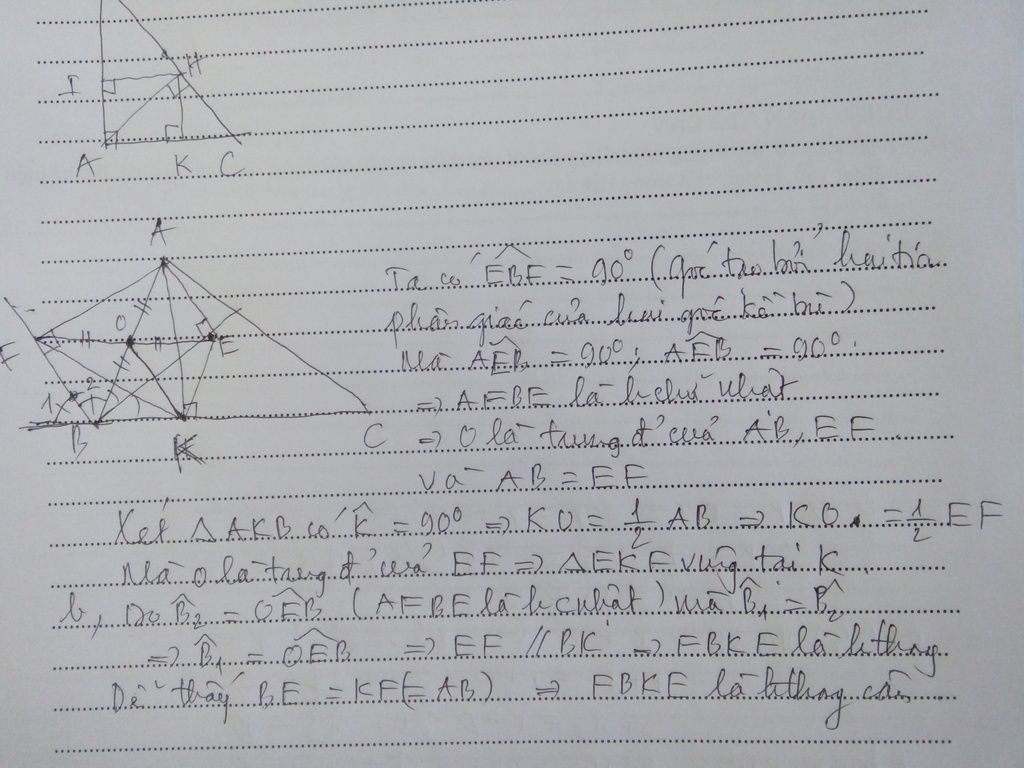 H
I
A K C
A
F O E
1 2
B K C
Ta có EBF = 90° (góc tạo bởi hai tia
phân giác của hai góc kề bù)
Mà AEB = 90°; AFB = 90°.
=> AFBE là h chữ nhật
=> O là trung đ' của AB, EF
và AB = EF
Xét ΔAKB có K̂ = 90° => KO = 1/2 AB => KO = 1/2 EF
Mà O là trung đ' của EF => ΔEKF vuông tại K
b, Do B̂2 = OEB (AFBE là h cnhật) mà B̂1 = B̂2
=> B̂1 = OEB => EF // BK => FBKE là hthang
Dễ thấy BE = KF(=AB) => FBKE là hthang cân